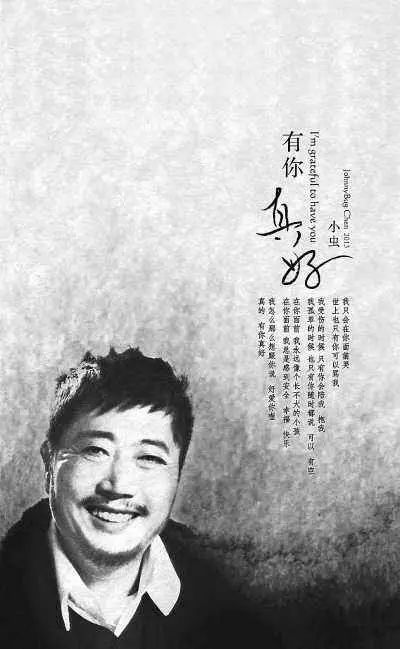 有你
真好
I'm grateful to have you
小虫
JohnnyBug Chen 2013
我只会在你面前哭
世上也只有你可以骂我
我受伤的时候 只有你会陪我 抱我
我孤单的时候 也只有你随时都说 可以 有空
在你面前 我永远像个长不大的小孩
在你面前 我总是感到安全 幸福 快乐
我怎么那么想跟你说 好爱你喔
真的 有你真好